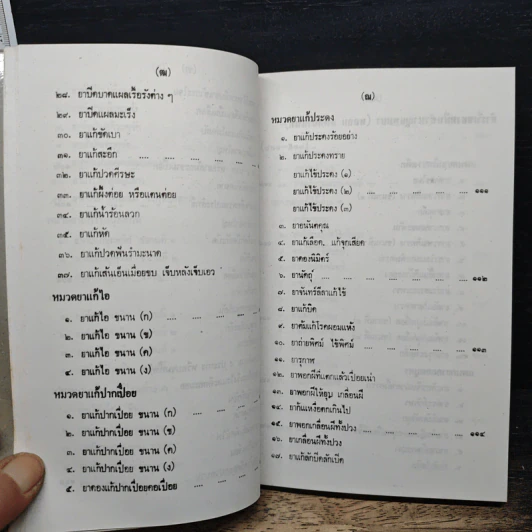 (ฒ)
๒๘. ยาบีดบาดแผลเรื้อรังต่าง ๆ
๒๙. ยาบีดแผลมะเร็ง
๓๐. ยาแก้ขัดเบา
๓๑. ยาแก้สะอึก .... .... .... .... ....
๓๒. ยาแก้ปวดศีรษะ
๓๓. ยาแก้ผึ้งต่อย หรือแตนต่อย
๓๔. ยาแก้น้ำร้อนลวก
๓๕. ยาแก้หัด
๓๖. ยาแก้ปวดฟันรำมะนาด
๓๗. ยาแก้เส้นเอ็นเมื่อยขบ เจ็บหลังเจ็บเอว
หมวดยาแก้ไอ
๑. ยาแก้ไอ ขนาน (ก) .... .... .... ....
๒. ยาแก้ไอ ขนาน (ข)
๓. ยาแก้ไอ ขนาน (ค)
๔. ยาแก้ไอ ขนาน (ง)
หมวดยาแก้ปากเปื่อย
๑. ยาแก้ปากเปื่อย ขนาน (ก) .... .... ....
๒. ยาแก้ปากเปื่อย ขนาน (ข)
๓. ยาแก้ปากเปื่อย ขนาน (ค)
๔. ยาแก้ปากเปื่อย ขนาน (ง)
๕. ยาดองแก้ปากเปื่อยคอเปื่อย
(ณ)
หมวดยาแก้ประดง
๑. ยาแก้ประดงร้อยอย่าง
๒. ยาแก้ประดงทราย
ยาแก้ไข้ประดง (๑)
ยาแก้ไข้ประดง (๒) .... .... .... .... ๑๑๑
ยาแก้ไข้ประดง (๓)
๓. ยาอนันตคุณ
๔. ยาแก้เลือด, แก้จุกเสียด
๕. ยาดองนิมิตร์
๖. ยานัตถุ์ .... .... .... .... .... ๑๑๒
๗. ยาจันทร์ลีลาแก้ไข้
๘. ยาแก้บิด
๙. ยาต้มแก้โรคผอมแห้ง
๑๐. ยาถ่ายพิศม์ ไข้พิศม์ .... .... .... ๑๑๓
๑๑.
๑๒. ยาพอกฝีที่แตกแล้วเปื่อยเน่า
๑๓. ยาพอกฝีให้ยุบ เกลื่อนฝี
๑๔.
๑๕. ยาพอกเกลื่อนฝีทั้งปวง .... .... .... ๑๑๔
๑๖. ยาเกลื่อนฝีทั้งปวง
๑๗. ยาแก้ลักปิดลักเปิด